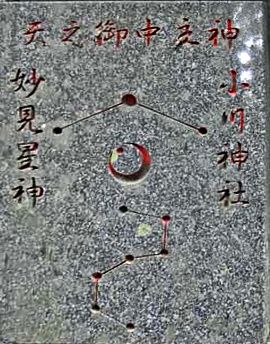 天之御中主神
小川神社
妙見星神